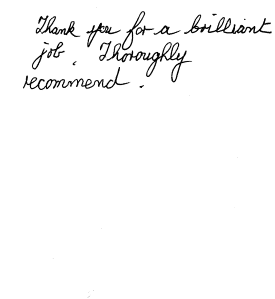 Thank you for a brilliant
job. Thoroughly
recommend.